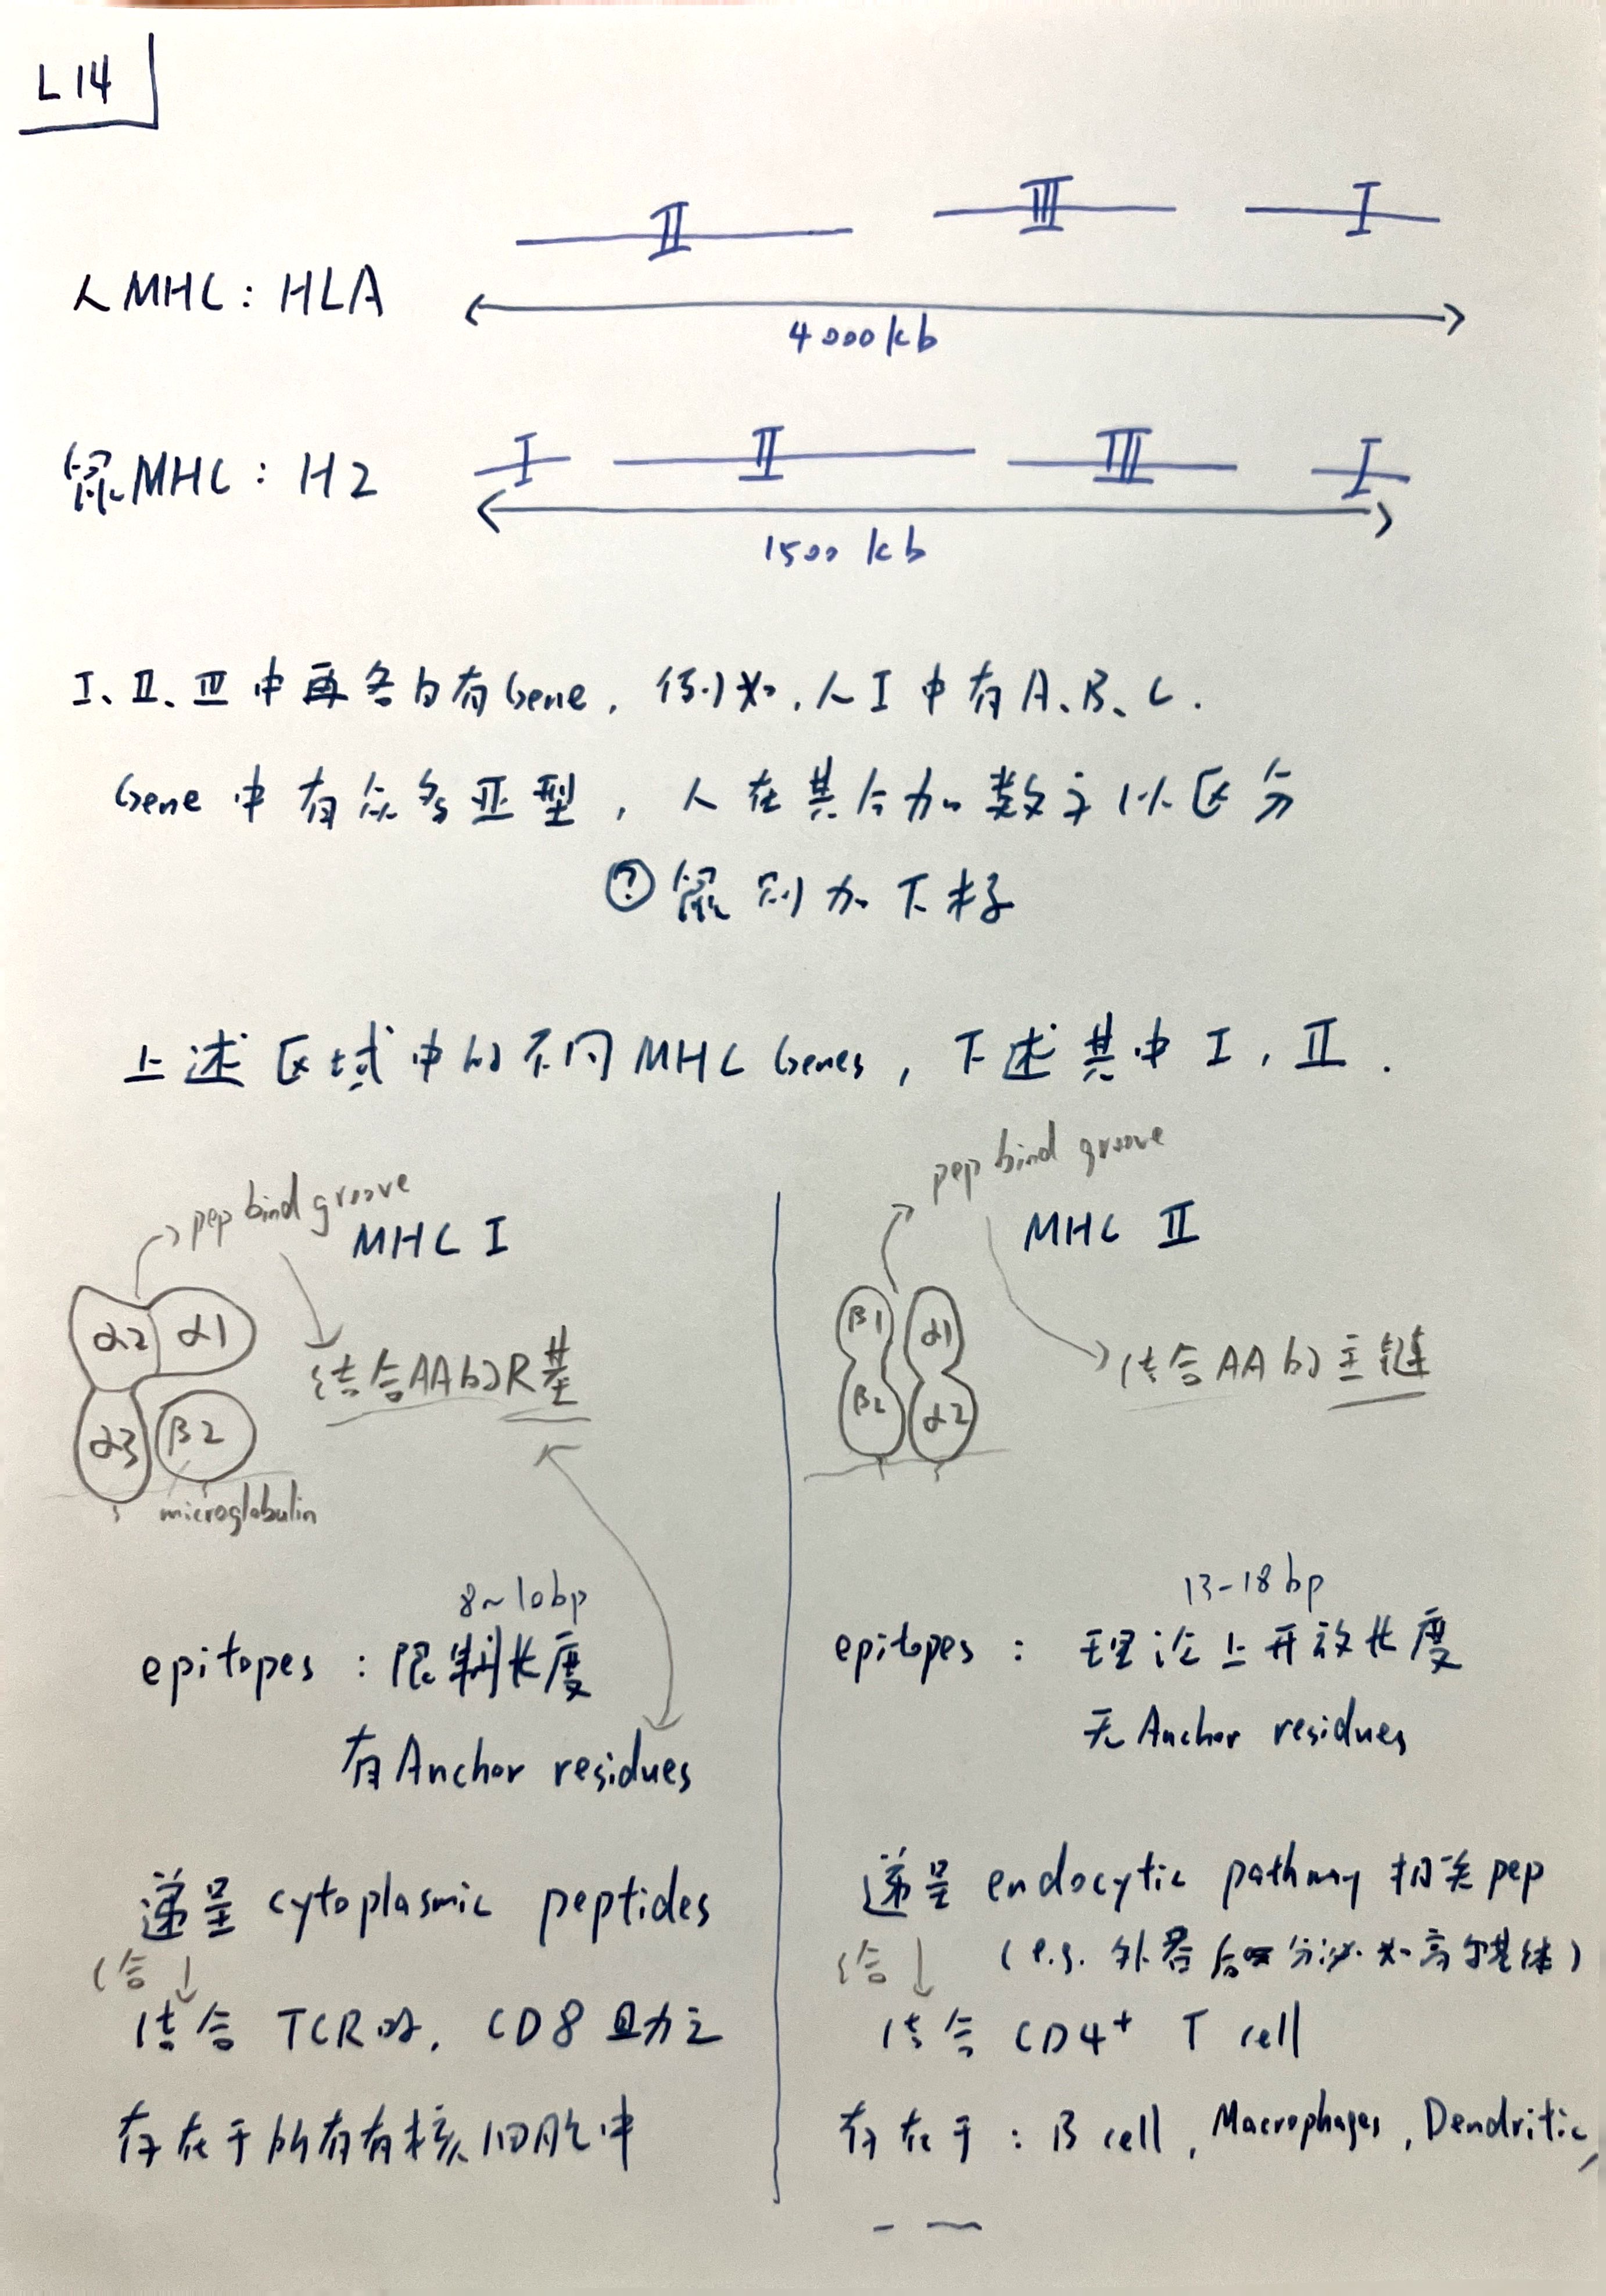 L14
II III I
人MHC: HLA
4000kb
I II III I
鼠MHC: H2
1500kb
I、II、III中再各自有Gene, 例如, 人I中有A、B、C.
Gene中有众多亚型, 人在其后加数字以区分
? 鼠则加下标
上述区域中的不同MHC Genes, 下述其中I, II.
pep bind groove
MHC I
α2 α1
结合AA的R基
α3 β2
microglobulin
8~10bp
epitopes: 限制长度
有Anchor residues
递呈 cytoplasmic peptides
结合 TCR时, CD8助之
存在于所有有核细胞中
pep bind groove
MHC II
β1 α1
结合AA的主链
β2 α2
13-18bp
epitopes: 理论上开放长度
无Anchor residues
递呈 endocytic pathway 相关pep
(e.g. 外吞后 分泌 如高尔基体)
结合 CD4+ T cell
存在于: B cell, Macrophages, Dendritic,